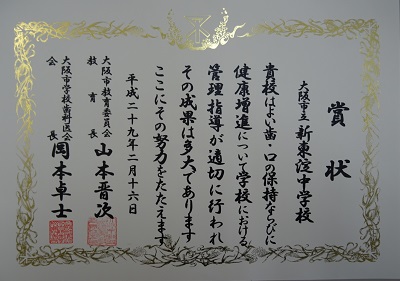 賞状
大阪市立 新東淀中学校
貴校はよい歯・口の保持ならびに
健康増進について学校における
管理指導が適切に行われ
その成果は多大であります
ここにその努力をたたえます
平成二十九年二月十六日
大阪市教育委員会
教育長 山本晋次
大阪市学校歯科医会
会長 岡本卓士